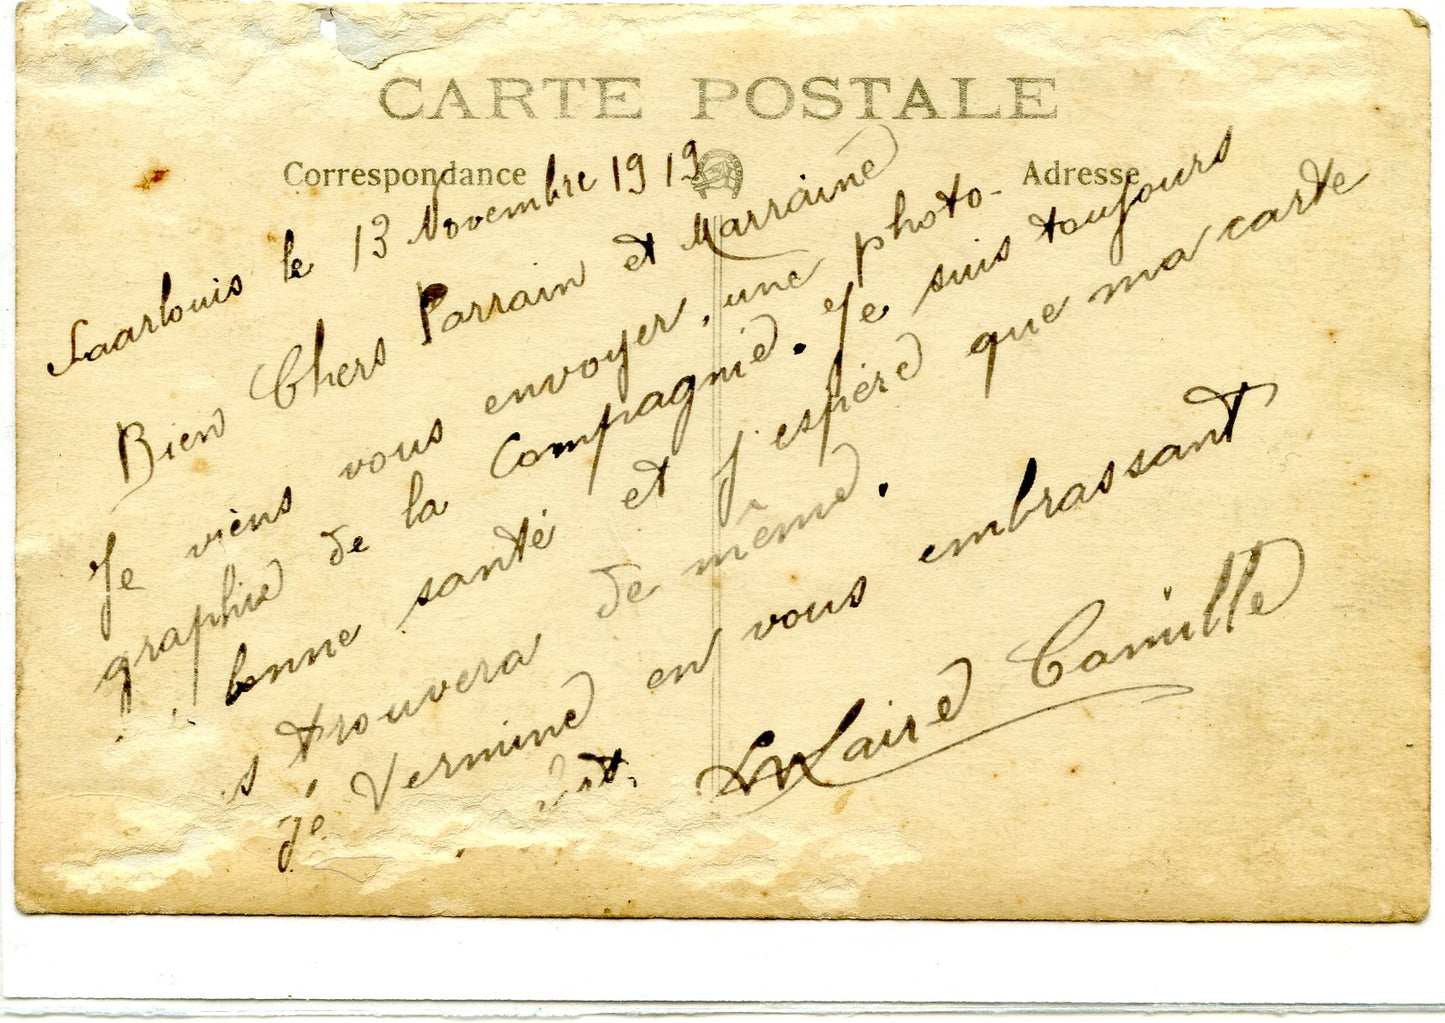 CARTE POSTALE
Correspondance
Adresse
Saarlouis le 13 Novembre 1919
Bien Chers Parrain et Marraine
Je viens vous envoyer, une photo-
graphie de la Compagnie. Je suis toujours
bonne santé et j'espère que ma carte
s trouvera de même.
Je Vermine en vous embrassant
Camille